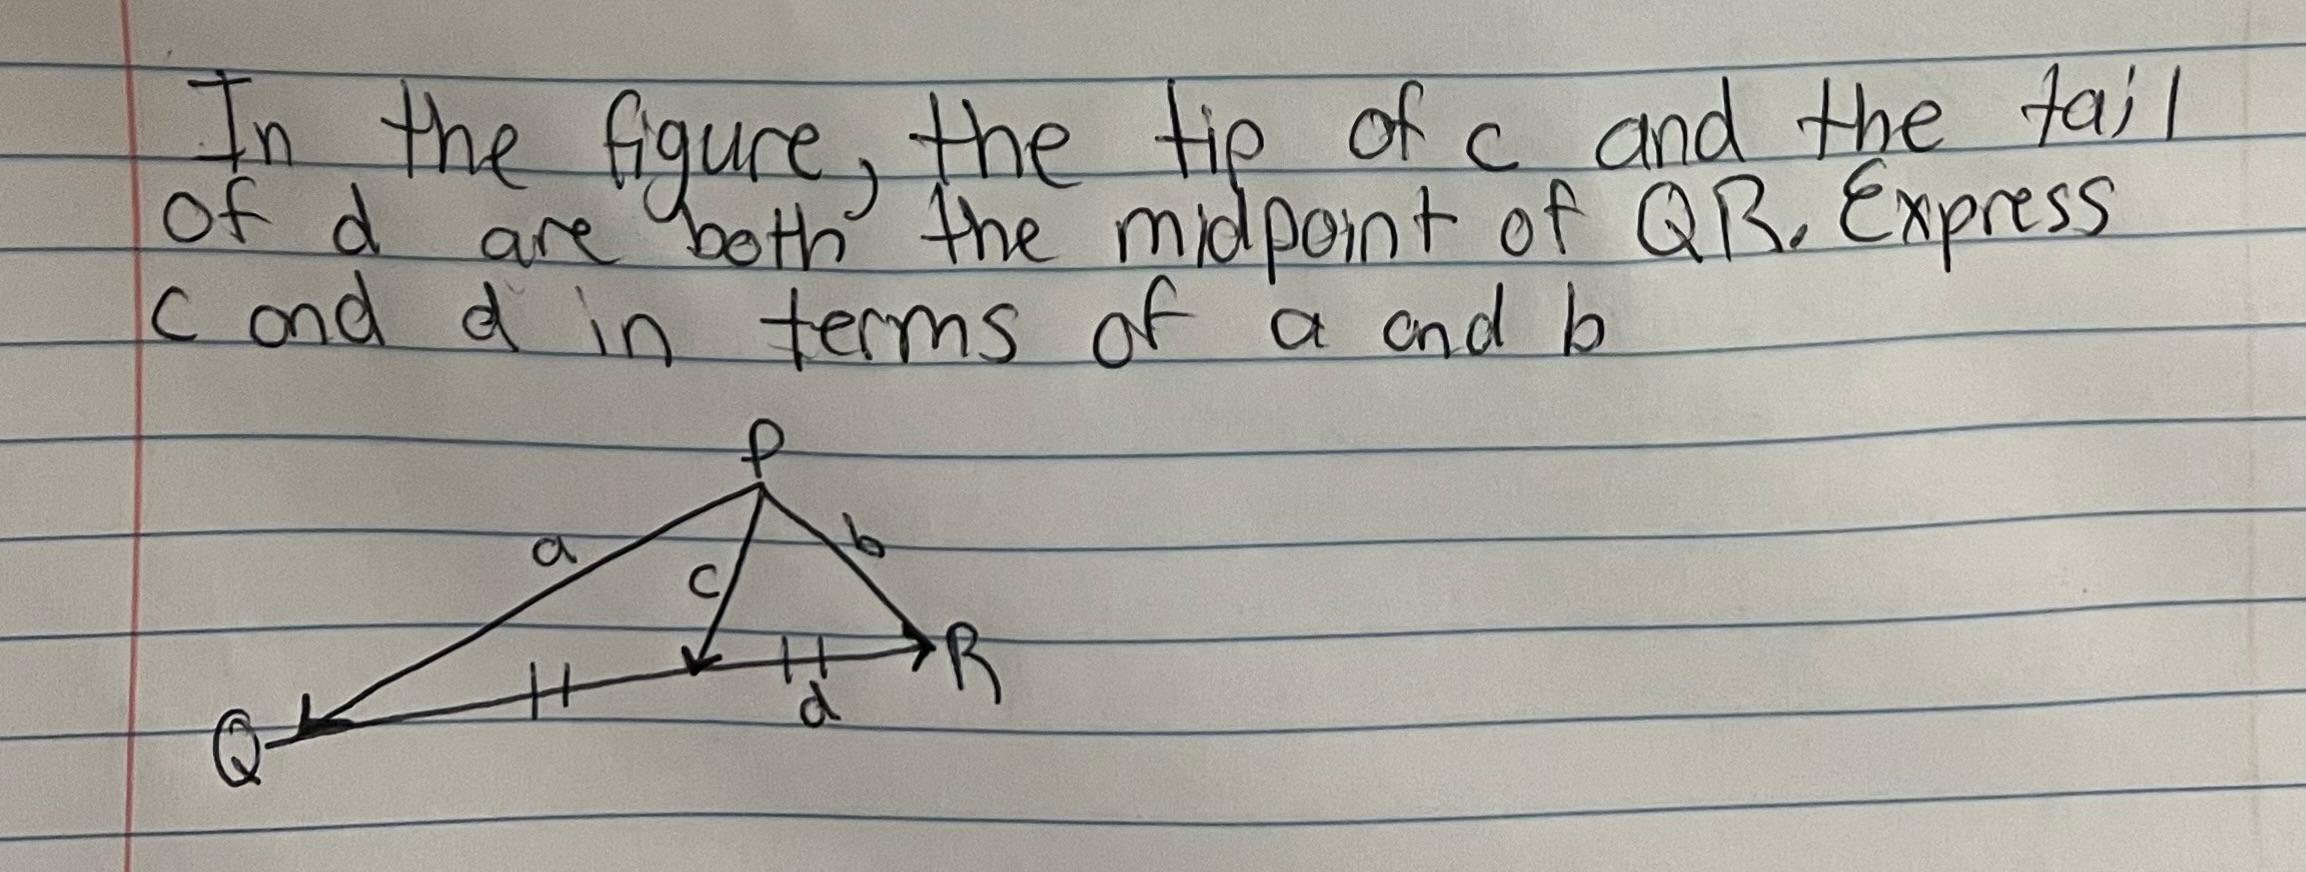 In the figure, the tip of c and the tail
of d are both the midpoint of QR. Express
c and d in terms of a and b
P
a
b
c
R
d
Q